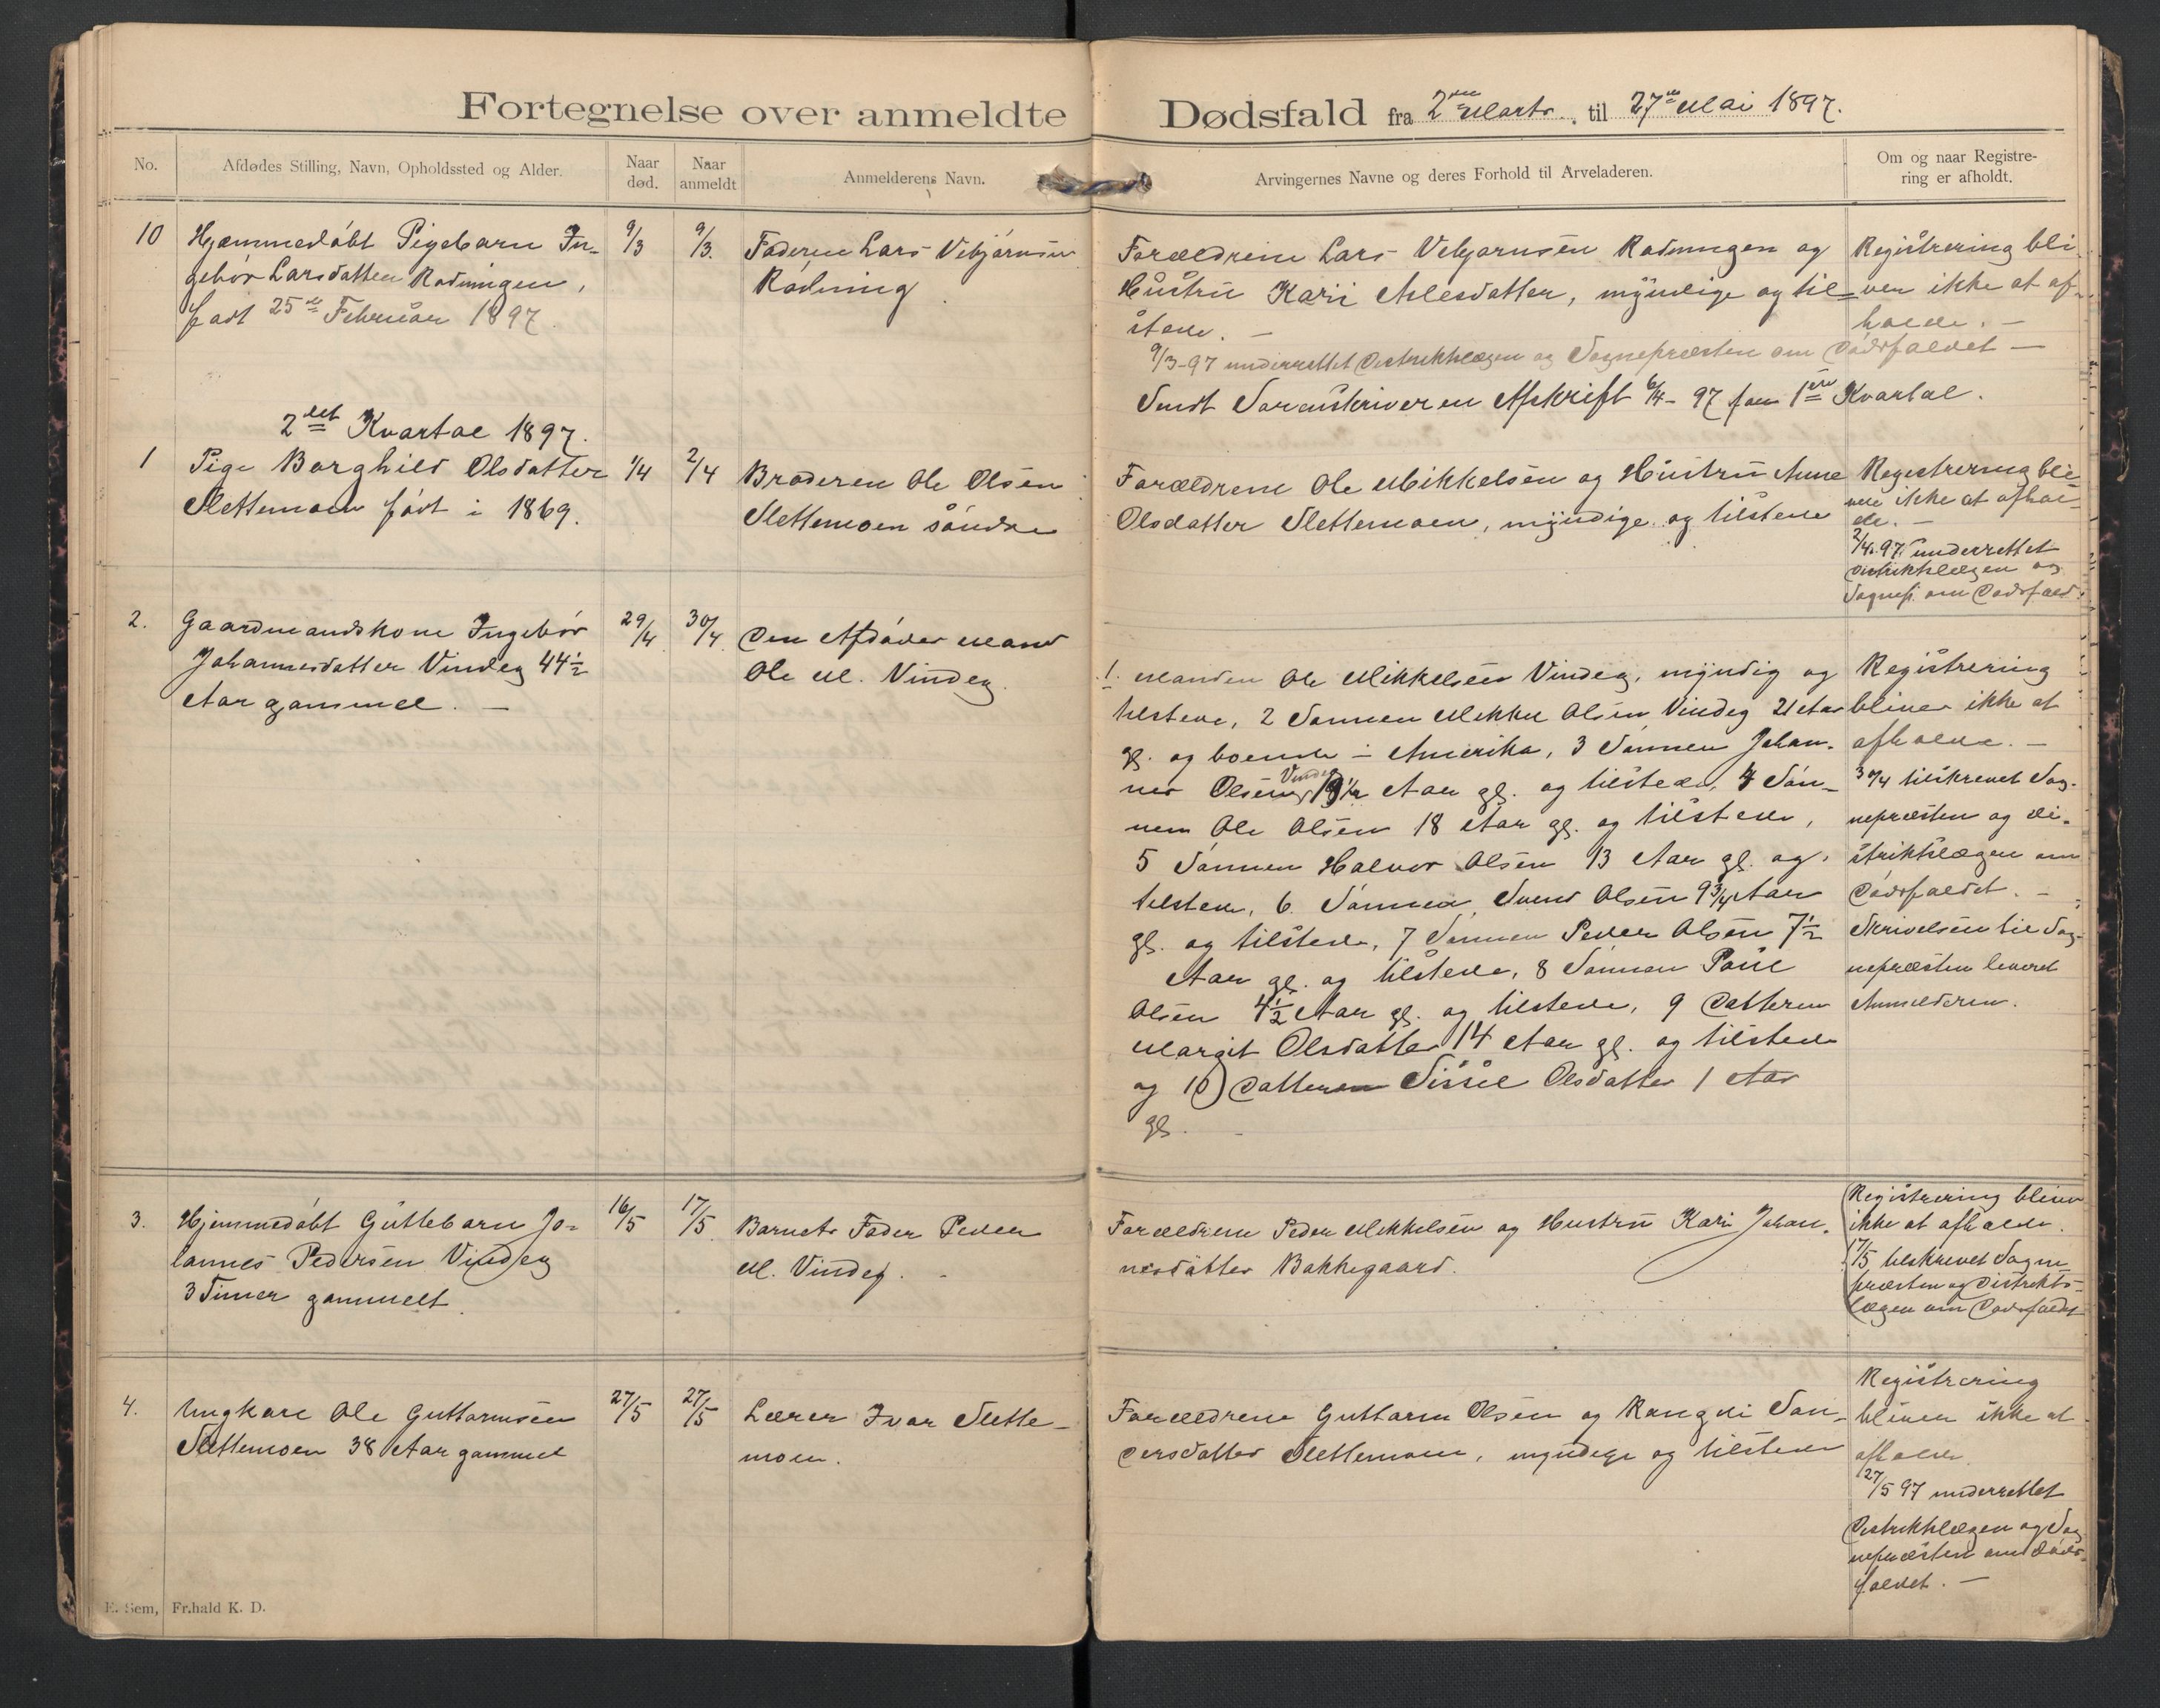 Fortegnelse over anmeldte Dødsfald fra 2den Marts til 27de Mai 1897.
No.
Afdødes Stilling, Navn, Opholdssted og Alder.
Naar død.
Naar anmeldt
Anmelderens Navn.
Arvingernes Navne og deres Forhold til Arveladeren.
Om og naar Registre-
ring er afholdt.
10
Hjemmedøbt Pigebarn In-
gebør Larsdatter Rødningen,
født 25de Februar 1897.
9/3
9/3.
Faderen Lars Vebjørnsen
Rødning.
Forældrene Lars Vebjørnsen Rødningen og
Hustru Kari Aslesdatter, myndige og til-
stede. —
9/3-97 underrettet Distriktslægen og Sognepræsten om Dødsfaldet —
Sendt Sorenskriveren Afskrift 6/4-97 for 1ste Kvartal.
Registrering bli-
ver ikke at af-
holde. —
2det Kvartal 1897.
1
Pige Borghild Olsdatter
Slettemoen født i 1869.
1/4
2/4
Broderen Ole Olsen
Slettemoen søndre
Forældrene Ole Mikkelsen og Hustru Anne
Olsdatter Slettemoen, myndige og tilstede
Registrering bli-
ver ikke at afhol-
de. —
2/4.97 underrettet
Distriktslægen og
Sognep. om Dødsfald.
2.
Gaardmandskone Ingebør
Johannesdatter Vindeg 44½
Aar gammel. —
29/4
30/4
Den Afdødes Mand
Ole M. Vindeg
1. Manden Ole Mikkelsen Vindeg, myndig og
tilstede, 2 Sønnen Mikkel Olsen Vindeg 21 Aar
gl. og boende i Amerika, 3 Sønnen Johan-
nes Olsen Vindeg 19½ Aar gl. og tilstede, 4 Søn-
nen Ole Olsen 18 Aar gl. og tilstede,
5 Sønnen Halvor Olsen 13 Aar gl. og
tilstede, 6. Sønnen Svend Olsen 9¾ Aar
gl. og tilstede, 7 Sønnen Peder Olsen 7½
Aar gl. og tilstede, 8 Sønnen Paul
Olsen 4½ Aar gl. og tilstede, 9 Datteren
Margit Olsdatter 14 Aar gl. og tilstede
og 10) Datteren Sissil Olsdatter 1 Aar
gl. —
Registrering
bliver ikke at
afholde. —
30/4 tilskrevet Sog-
nepræsten og Di-
striktslægen om
Dødsfaldet. —
Skrivelsen til Sog-
nepræsten leveret
Anmelderen.
3.
Hjemmedøbt Guttebarn Jo-
hannes Pedersen Vindeg
3 Timer gammelt
16/5
17/5.
Barnets Fader Peder
M. Vindeg. -
Forældrene Peder Mikkelsen og Hustru Kari Johan-
nesdatter Bakkegaard.
Registrering bliver
ikke at afholde.
17/5 tilskrevet Sogne-
præsten og Distrikts-
lægen om Dødsfaldet
4.
Ungkare Ole Guttormsen
Slettemoen 38 Aar gammel
27/5
27/5
Lærer Ivar Slette-
moen.
Forældrene Guttorm Olsen og Rangdi San-
dersdatter Slettemoen, myndige og tilstede
Registrering
bliver ikke at
afholde.
27/5 97 underrettet
Distriktslægen og Sog-
nepræsten om Døds-
faldet. —
E. Sem, Fr.hald K. D.